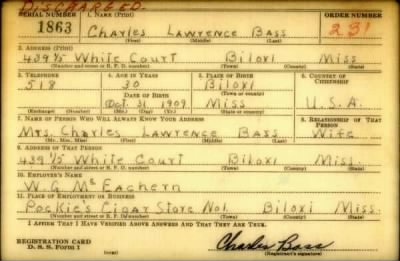 DISCHARGED.
SERIAL NUMBER 1. NAME (Print) ORDER NUMBER
1863 Charles Lawrence Bass 231
(First) (Middle) (Last)
2. ADDRESS (Print)
439 1/2 White Court Biloxi Miss
(Number and street or R. F. D. number) (Town) (County) (State)
3. TELEPHONE 4. AGE IN YEARS 5. PLACE OF BIRTH 6. COUNTRY OF CITIZENSHIP
518 30 Biloxi
DATE OF BIRTH (Town or county)
Oct. 31 1909 Miss U.S.A.
(Exchange) (Number) (Mo.) (Day) (Yr.) (State or country)
7. NAME OF PERSON WHO WILL ALWAYS KNOW YOUR ADDRESS 8. RELATIONSHIP OF THAT PERSON
Mrs. Charles Lawrence Bass Wife
(Mr., Mrs., Miss) (First) (Middle) (Last)
9. ADDRESS OF THAT PERSON
439 1/2 White Court Biloxi Miss.
(Number and street or R. F. D. number) (Town) (County) (State)
10. EMPLOYER'S NAME
W. G. McEachern
11. PLACE OF EMPLOYMENT OR BUSINESS
Cigar Store No1. Biloxi Miss
(Number and street or R. F. D. number) (Town) (County) (State)
I AFFIRM THAT I HAVE VERIFIED ABOVE ANSWERS AND THAT THEY ARE TRUE.
REGISTRATION CARD
D. S. S. Form 1
Charles Bass
(Registrant's signature)